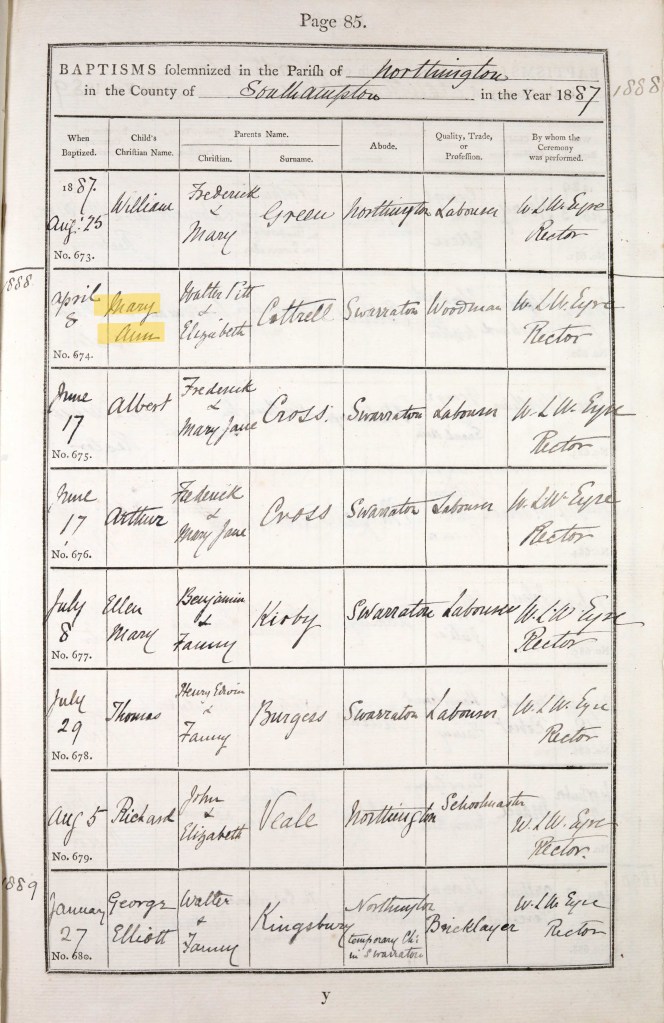 Page 85.
BAPTISMS solemnized in the Parish of Northington
in the County of Southampton in the Year 1887
1888
When Baptized.
Child's Christian Name.
Parents Name.
Christian.
Surname.
Abode.
Quality, Trade, or Profession.
By whom the Ceremony was performed.
1887.
Augt 25
No. 673.
William
Frederick
&
Mary
Green
Northington
Labourer
W L W Eyre
Rector
1888
April
8
No. 674.
Mary
Ann
Walter Pitt
&
Elizabeth
Cottrell
Swarraton
Woodman
W. L. W. Eyre
Rector
June
17
No. 675.
Albert
Frederick
&
Mary Jane
Cross.
Swarraton
Labourer
W. L. W. Eyre
Rector
June
17
No. 676.
Arthur
Frederick
&
Mary Jane
Cross
Swarraton
Labourer
W. L. W. Eyre
Rector
July
8
No. 677.
Ellen
Mary
Benjamin
&
Fanny
Kirby
Swarraton
Labourer
W. L. W. Eyre
Rector
July
29
No. 678.
Thomas
Henry Edwin
&
Fanny
Burgess
Swarraton
Labourer
W. L. W. Eyre
Rector
Aug 5
No. 679.
Richard
John
&
Elizabeth
Veale
Northington
Schoolmaster
W. L. W. Eyre
Rector.
1889
January
27
No. 680.
George
Elliott
Walter
&
Fanny
Kingsbury
Northington
temporary
in Swarraton
Bricklayer
W. L. W. Eyre
Rector
y